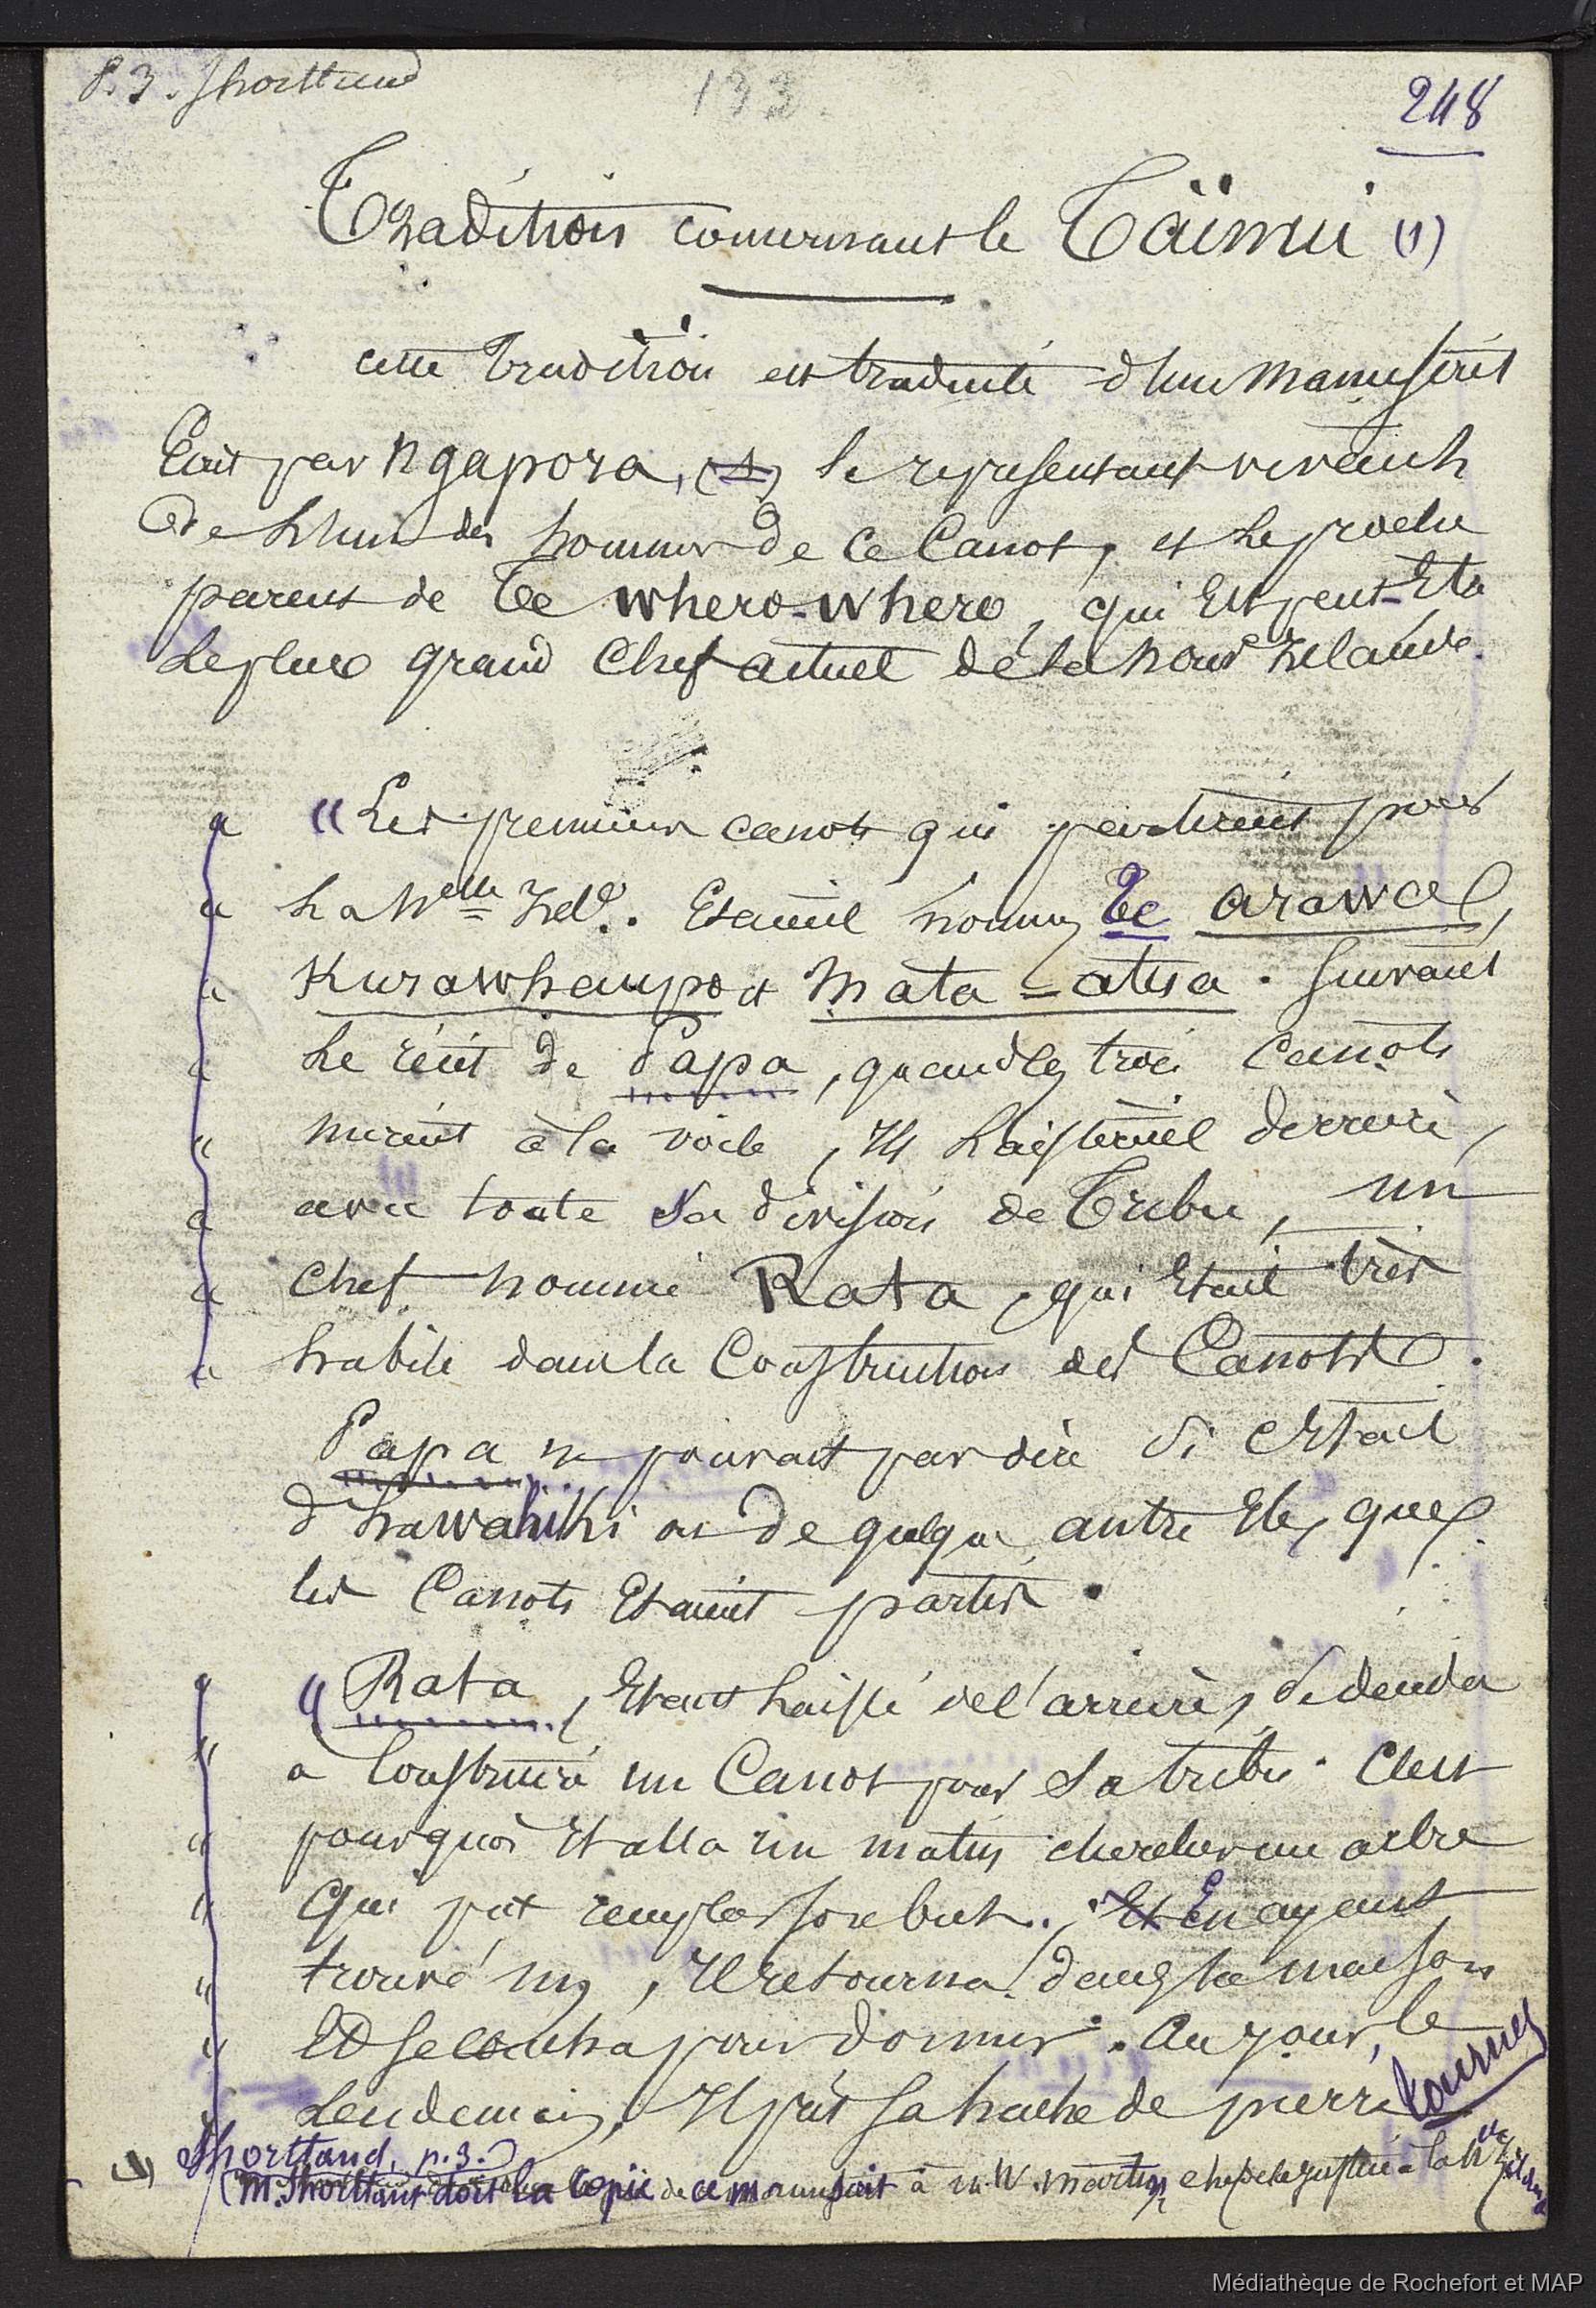 P. 3. Shortland
133.
248
Tradition concernant le Taïnui (1)
cette tradition est traduite d'un manuscrit
Ecrit par Ngapora, (1) le representant vivant
de l'un des hommes de ce Canot, et le proche
parent de Te whero-whero, qui Est peut-Etre
le plus grand Chef actuel de la nouv Zelande.
a « Les premiers canots qui partirent pour
a la Nelle Zelde. Etaient nommés Te arawa,
a Kurawhaupo et Mata-atua. Suivant
a le récit de Papa, quand les trois Canots
" mirent à la voile, Ils laissèrent derrière,
a avec toute sa division de Tribu, un
a Chef nommé Rata, qui Etait très
a habile dans la Construction des Canots.
Papa ne pouvait pas dire si c'Etait
d'hawahiki ou de quelque autre Ile, que
les Canots Etaient partis.
" « Rata, Etant laissé de l'arrière, se decida
" a Construire un Canot pour sa tribu. C'est
" pourquoi Il alla un matin chercher un arbre
" Qui put remplir son but. ; Et En ayant
" trouvé un, Il retourna dans sa maison
" Et se coucha pour dormir. Au jour, le
" Lendemain, Il prit sa hache de pierre
tournez
(1) Shortland, p. 3.
(M. Shortland doit la copie de ce manuscrit à M. W. Martin, chef de la justice à la Nlle Zélande
Médiathèque de Rochefort et MAP